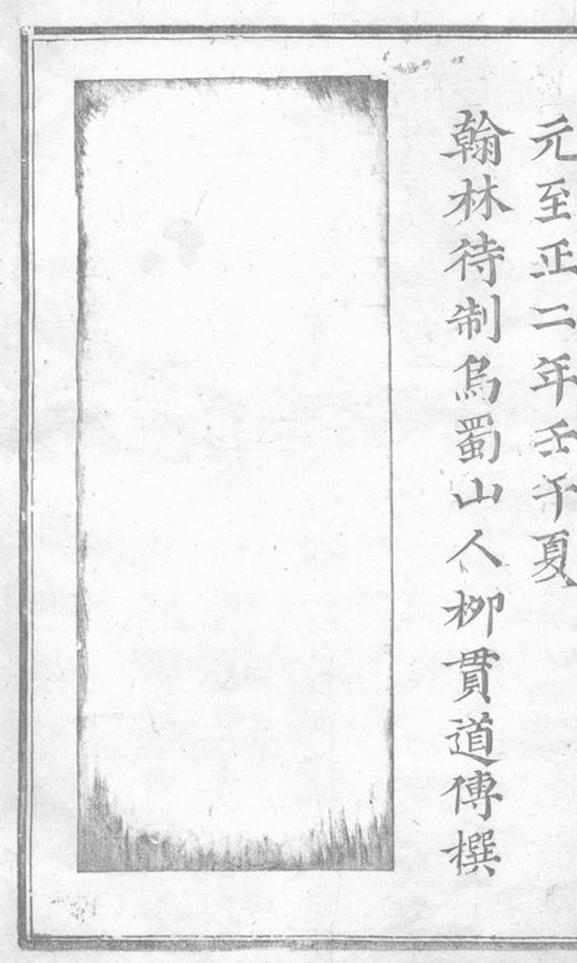 元至正二年壬午夏
翰林待制烏蜀山人柳貫道傳撰